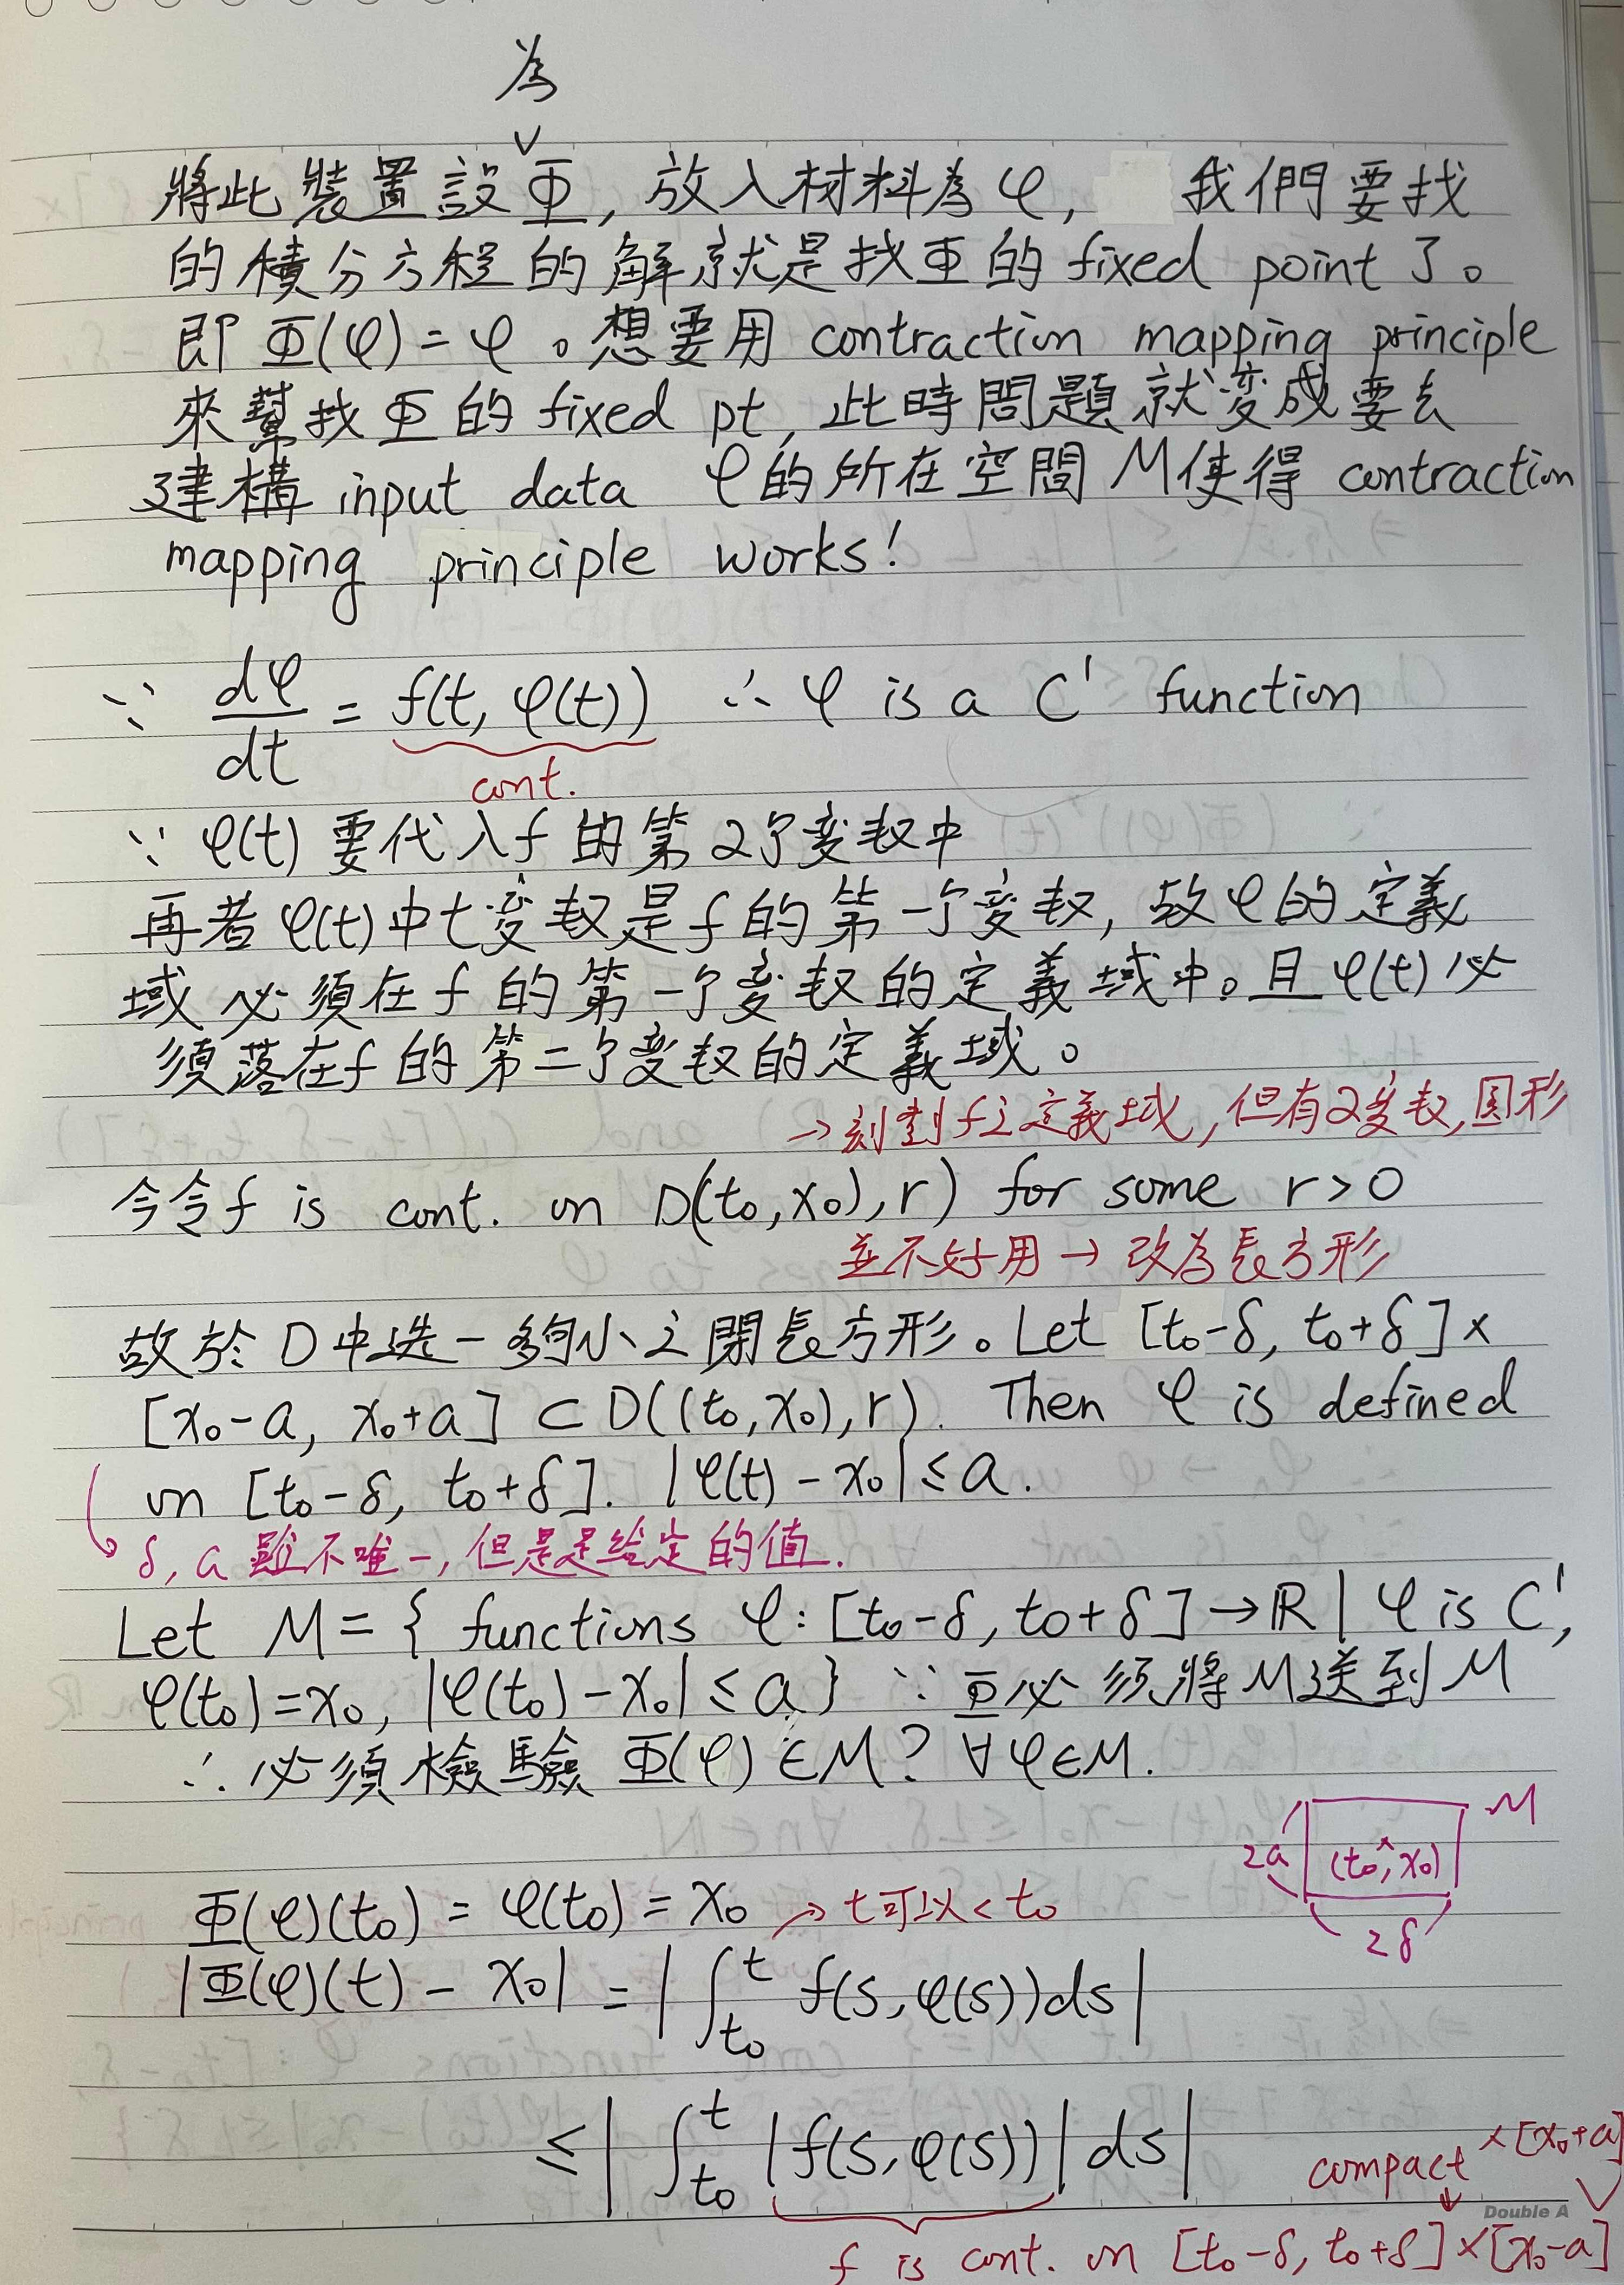 為
∨
將此裝置設Φ, 放入材料為φ, 我們要找
的積分方程的解就是找Φ的 fixed point了。
即 Φ(φ) = φ。想要用 contraction mapping principle
來幫找Φ的 fixed pt, 此時問題就变成要去
建構 input data φ的所在空間 M使得 contraction
mapping principle works!
∵ dφ/dt = f(t, φ(t)) ∴ φ is a C' function
cont.
∵ φ(t) 要代入f 的第2个变数中
再者 φ(t)中t变数是f的第一个变数, 故φ的定義
域必須在f的第一个变数的定義域中。且φ(t)必
須落在f的第二个变数的定義域。
→刻劃f之定義域, 但有2变数, 圓形
今令f is cont. on D(t₀, x₀), r) for some r > 0
並不好用 → 改為長方形
故於D中选一夠小之閉長方形。Let [t₀-δ, t₀+δ] ×
[x₀-a, x₀+a] ⊂ D((t₀, x₀), r). Then φ is defined
on [t₀-δ, t₀+δ]. |φ(t) - x₀| ≤ a.
↳ δ, a 雖不唯一, 但是是給定的值.
Let M = { functions φ: [t₀-δ, t₀+δ] → ℝ | φ is C',
φ(t₀)=x₀, |φ(t₀) - x₀| ≤ a } ∵ Φ必須將M送到M
∴ 必須檢驗 Φ(φ) ∈ M? ∀φ∈M.
M
2a (t₀, x₀)
2δ
Φ(φ)(t₀) = φ(t₀) = x₀ → t可以 < t₀
|Φ(φ)(t) - x₀| = | ∫_{t₀}^{t} f(s, φ(s)) ds |
≤ | ∫_{t₀}^{t} | f(s, φ(s)) | ds |
compact ↓ × [x₀+a]
Double A
f is cont. on [t₀-δ, t₀+δ] × [x₀-a]